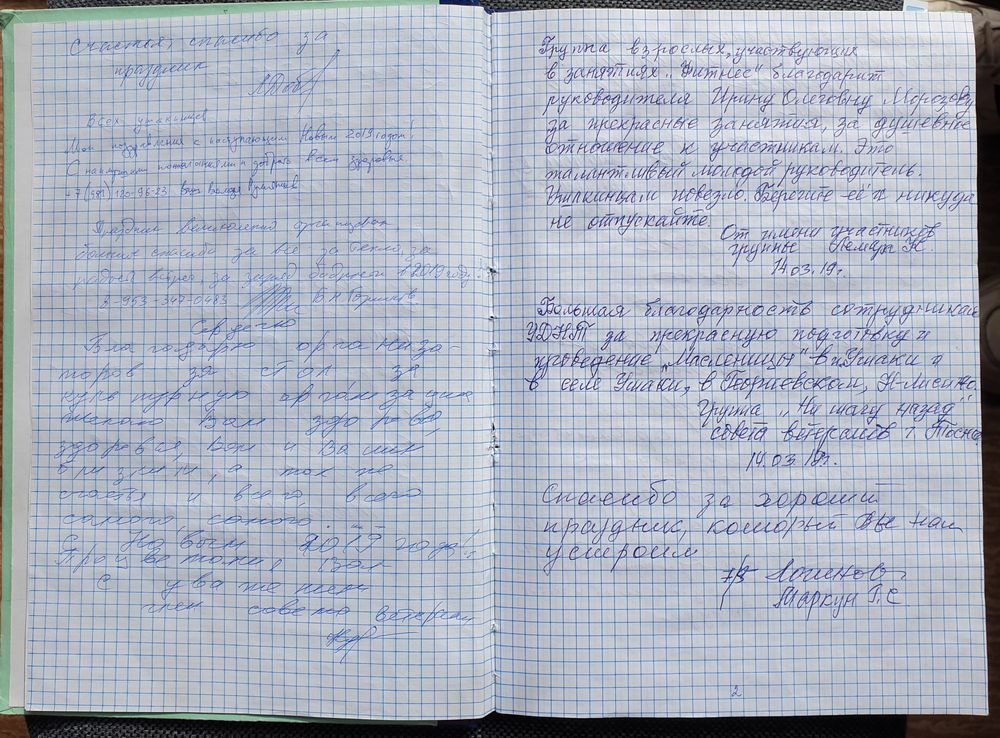 Счастья, спасибо за
праздник
Всех
Мои поздравления с наступающим Новым 2019 годом!
С наилучшими пожеланиями и доброго всем здоровья.
+7(981) 120-96-23
Праздник великолепно организован
большое спасибо за всё, за тепло, за
радость встреч, за заряд бодрости в 2019 году!
8-953-347-0483
Сердечно
Благодарю организа-
торов за стол, за
культурную организацию
желаю Вам здоровья,
здоровья, Вам и Вашим
близким, а так же
счастья и всего, всего
самого, самого. . .
С Новым 2019 годом!
Процветания, Вам
С уважением
член совета ветеранов
Группа взрослых, участвующих
в занятиях „Фитнес" благодарит
руководителя Ирину Олеговну Морозову
за прекрасные занятия, за душевное
отношение к участникам. Это
талантливый молодой руководитель.
повезло. Берегите её и никуда
не отпускайте.
От имени участников
группы
14.03.19г.
Большая благодарность сотрудникам
УДНТ за прекрасную подготовку и
проведение „Масленицы" в п. Ушаки и
в селе Ушаки, в Георгиевском,
Группа „Ни шагу назад"
совета ветеранов г. Тосно
14.03.19г.
Спасибо за хороший
праздник, который Вы нам
устроили
Логинов
Маркун Г.С.
2